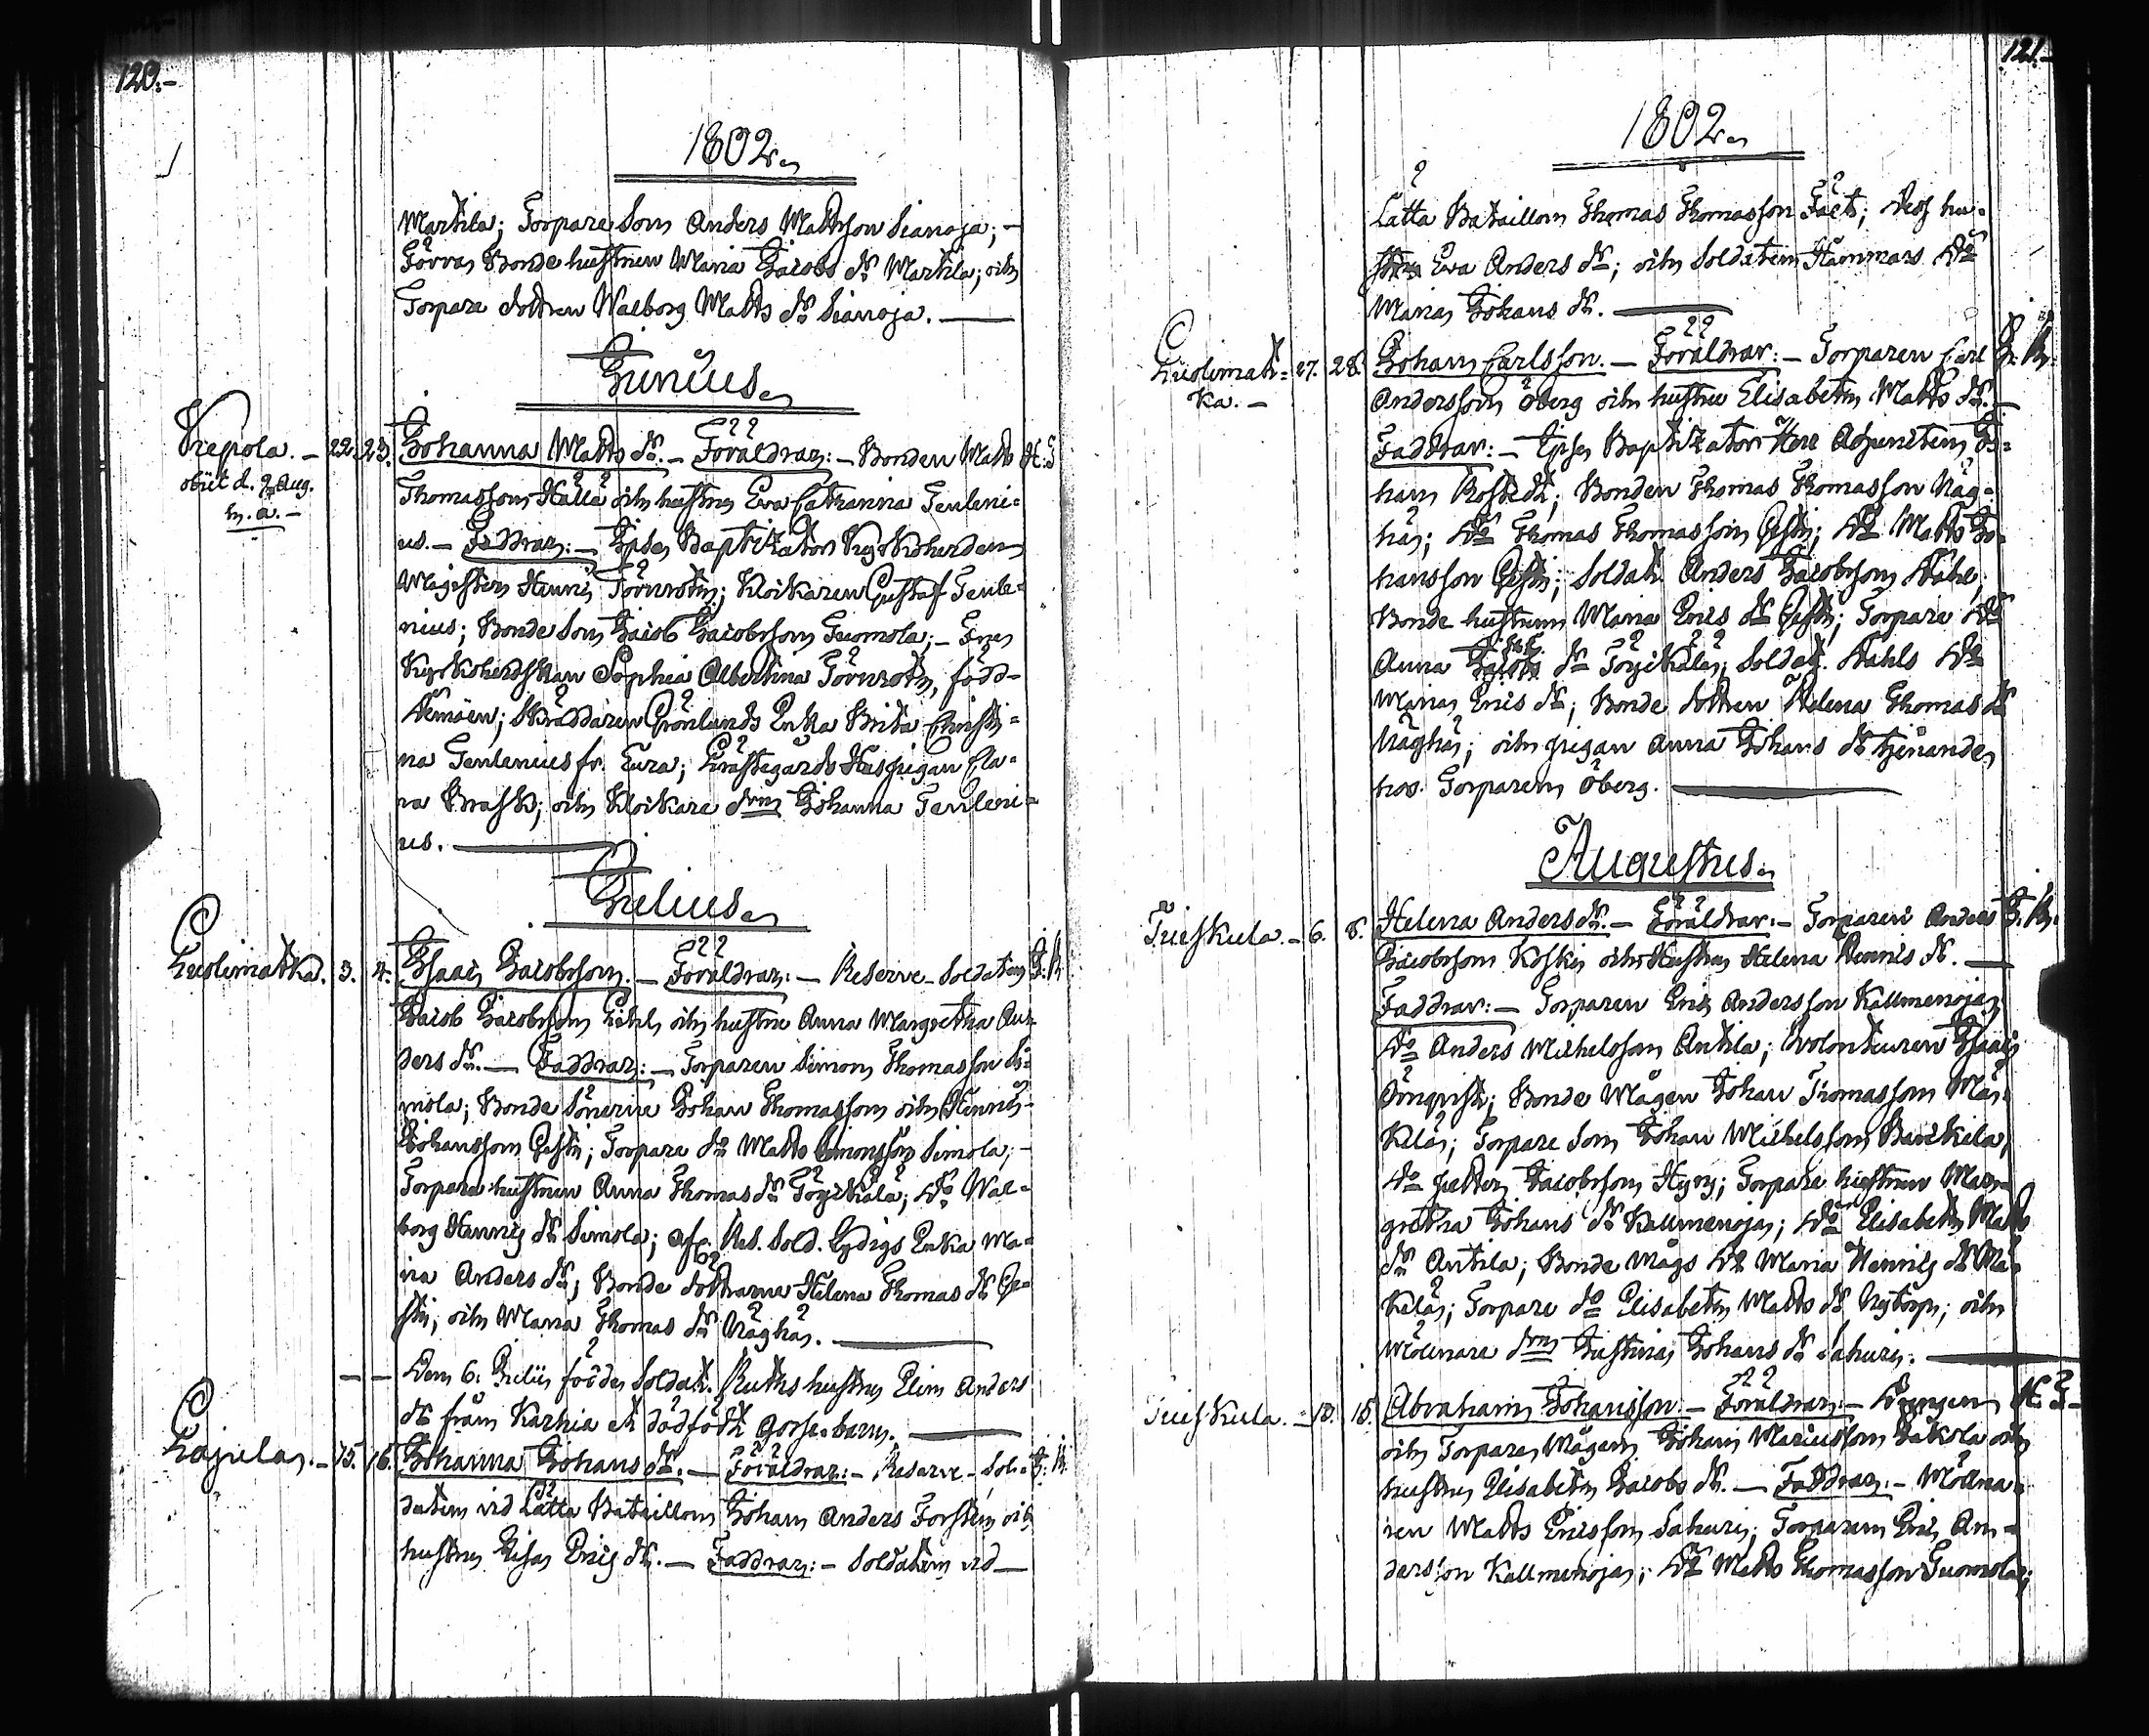 120.-
1802.
Martila; Torpare Son Anders Mattsson Sianoja; -
Förra Bonde hustrun Maria Jacobs dr Martila; och
Torpare dottren Walborg Matts dr Sianoja. —
Junius.
Krepola. - 22. 23. Johanna Matts dr. - Föräldrar: - Bonden Matts H. T
obiit d. 9 Aug.
h. a. -
Thomasson Hälla och hustru Eva Catharina Tenleni=
us. - Faddrar: - Ipse Baptizator Kyrkoherden
Magistern Henric Törnroth; Klockaren Gustaf Tenle=
nius; Bonde Son Jacob Jacobsson Tuomola; - Fru
Kyrkoherdskan Sophia Albertina Törnroth, född
Skräddaren Grönlunds Enka Brita Christi=
na Tenlenius fr. Eura; Prästegårds Huspigan Cla=
ra Brask; och Klockare dren Johanna Tenleni=
us. —
Julius.
Luolimatka. 3. 4. Isaac Jacobsson. - Föräldrar: - Reserve-Soldaten J. R
Jacob Jacobsson och hustru Anna Margretha An=
ders dr. - Faddrar: - Torparen Simon Thomasson Si=
mola; Bonde Sönerne Johan Thomasson och Henric
Johansson; Torpare do Matts Simonsson Simola; -
Torpare hustrun Anna Thomas dr Töyikälä; do Wal=
borg Henrics dr Simola; afl. Res. Sold. Lydigs Enka Ma=
ria Anders dr; Bonde döttrarna Helena Thomas dr
och Maria Thomas dr Näyhä. —
- - Den 6. Julii födde Soldat. Ruths hustru Elin Anders
dr från Karhia et dödfödt gosse-barn. —
Lajula. - 15. 16. Johanna Johans dr. - Föräldrar: - Reserve-Sol= J. R.
daten vid Lätta Bataillon Johan Anders Forsten och
hustru Lisa Erics dr. - Faddrar: - Soldaten vid -
121.-
1802.
Lätta Bataillon Thomas Thomasson Fält; dess hu=
stru Eva Anders dr; och Soldaten Hammars do
Maria Johans dr. —
Luolimat= 27. 28. Johan Carlsson. - Föräldrar: - Torparen Carl J. R.
ka. -
Andersson Öberg och hustru Elisabeth Matts dr. -
Faddrar: - Ipse Baptizator Herr Adjuncten Jo=
han Rostedt; Bonden Thomas Thomasson Näy=
hä; do Thomas Thomasson; do Matts Jo=
hansson; Soldat. Anders Jacobsson Stahl,
Bonde hustrun Maria Erics dr; Torpare do
Anna dr Töyikälä; Soldat. Stahls do
Maria Erics dr; Bonde dottren Helena Thomas dr
Näyhä; och pigan Anna Johans dr tjenande
hos Torparen Öberg. —
Augustus.
Tuiskula. - 6. 8. Helena Anders dr. - Föräldrar: - Torparen Anders J. R.
Jacobsson Koski och Hustru Helena Hennis dr. -
Faddrar: - Torparen Eric Andersson Kallmenoja;
do Anders Michelsson Antila; Volonteuren Isaac
Bonde Mågen Johan Thomasson Mä=
kelä; Torpare Son Johan Michelsson
do Petter Jacobsson; Torpare hustrun Mar=
gretha Johans dr Kallmenoja; do Elisabeth Matts
dr Antila; Bonde Mågs do Maria Henrics dr Mä=
kelä; Torpare do Elisabeth Matts dr Nytorp; och
Mölnare dren Justina Johans dr Sahuri. —
Tuiskula. - 10. 15. Abraham Johansson. - Föräldrar: - Drengen H. T.
och Torpare Mågen Johan Mariusson Jakola och
hustru Elisabeth Jacobs dr. - Faddrar: - Mölna=
ren Matts Ericsson Sahuri; Torparen Eric An=
dersson Kallmenoja; do Matts Thomasson Tuomola;